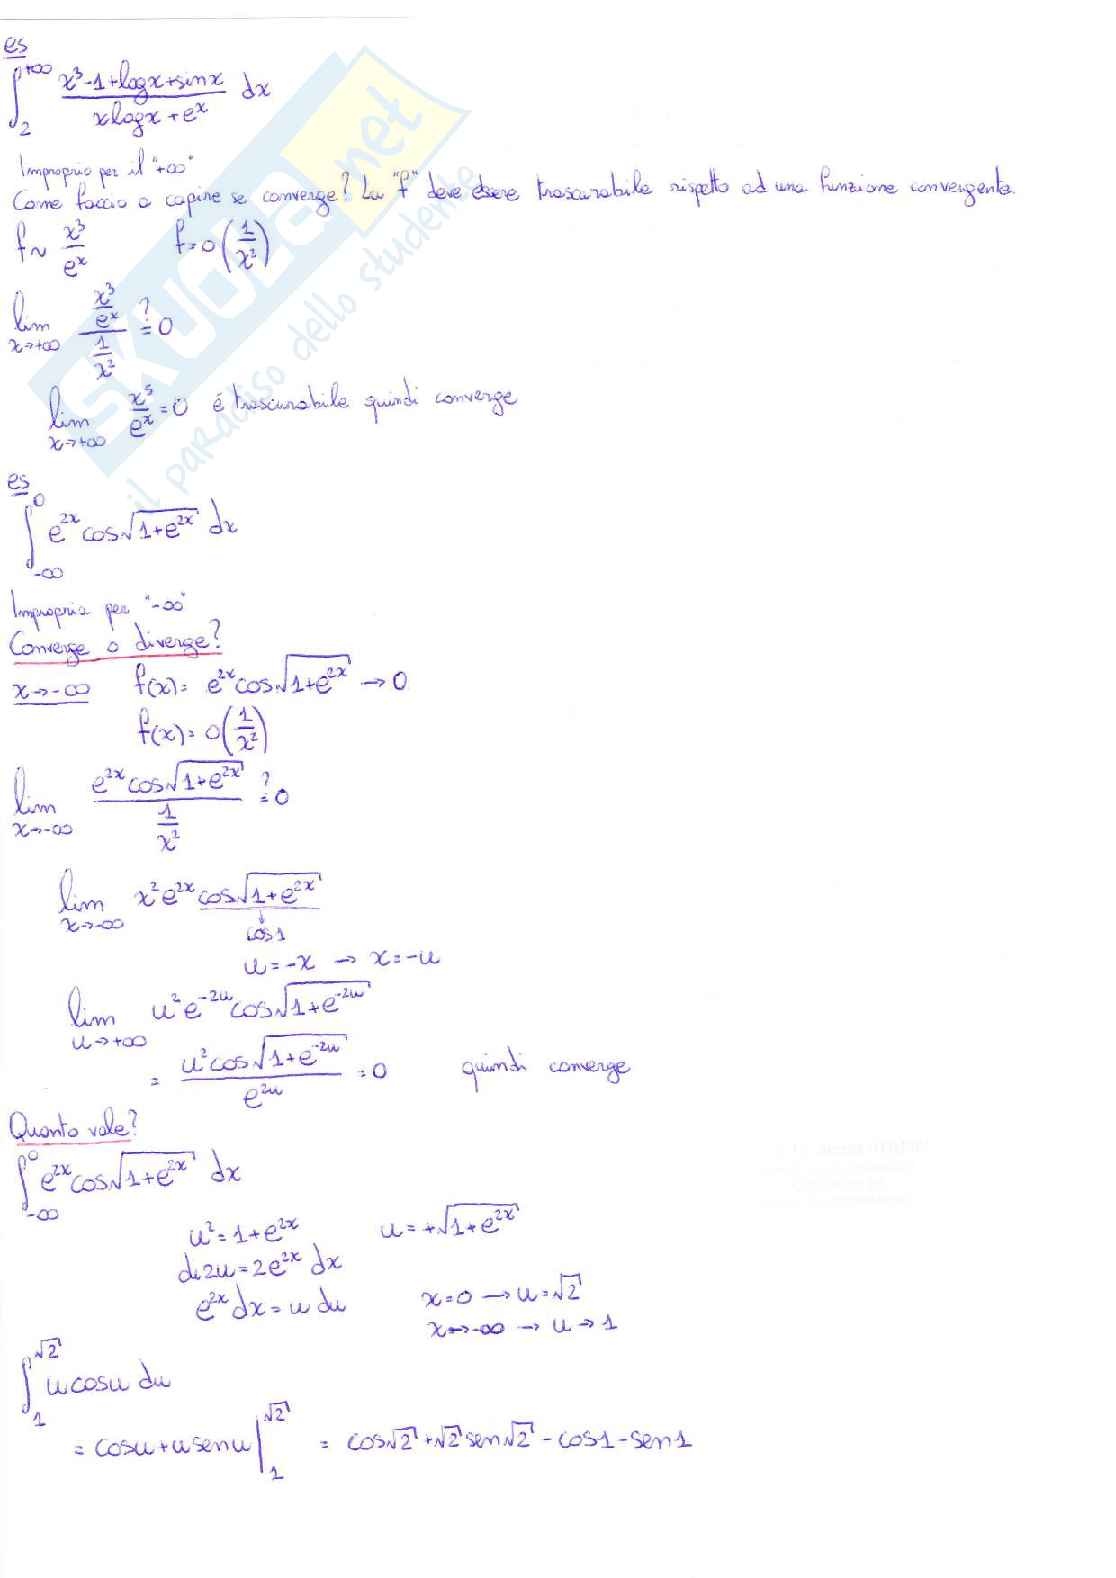 es
∫_2^{+∞} (x³-1+logx+sinx)/(xlogx+e^x) dx
Improprio per il "+∞"
Come faccio a capire se converge? La "f" deve essere trascurabile rispetto ad una funzione convergente.
f ~ x³/e^x   f=o(1/x²)
lim_{x→+∞} (x³/e^x)/(1/x²) ?= 0
lim_{x→+∞} x⁵/e^x = 0 é trascurabile quindi converge
es
∫_{-∞}^0 e^{2x} cos√(1+e^{2x}) dx
Improprio per "-∞"
Converge o diverge?
x→-∞   f(x)= e^{2x}cos√(1+e^{2x}) → 0
f(x)= o(1/x²)
lim_{x→-∞} (e^{2x}cos√(1+e^{2x}))/(1/x²) ?= 0
lim_{x→-∞} x²e^{2x}cos√(1+e^{2x})
↓
cos1
u=-x → x=-u
lim_{u→+∞} u²e^{-2u}cos√(1+e^{-2u})
= (u²cos√(1+e^{-2u}))/e^{2u} = 0   quindi converge
Quanto vale?
∫_{-∞}^0 e^{2x}cos√(1+e^{2x}) dx
u²=1+e^{2x}   u=+√(1+e^{2x})
du2u=2e^{2x} dx
e^{2x}dx=u du   x=0 → u=√2
x→-∞ → u→1
∫_1^{√2} u cosu du
= cosu+u senu |_1^{√2} = cos√2+√2 sen√2 - cos1 - sen1
SKUOLA.net
il paradiso dello studente